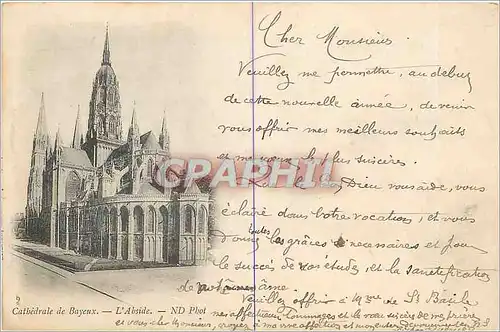 Cher Monsieur
Veuillez me permettre, au debut
de cette nouvelle année, de venir
vous offrir mes meilleurs souhaits
et mes voeux les plus sincères.
CPAPHIL.COM
Dieu vous aide, vous
éclaire dans votre vocation, et vous
donne toutes les grâces nécessaires et pour
le succès de vos études, et la sanctification
de votre âme
Veuillez offrir à Mme de St Basile
mes affectueux hommages et les voeux sincères de
et vous cher Monsieur, croyez à mon affection et
Cathédrale de Bayeux. — L'Abside. — ND Phot